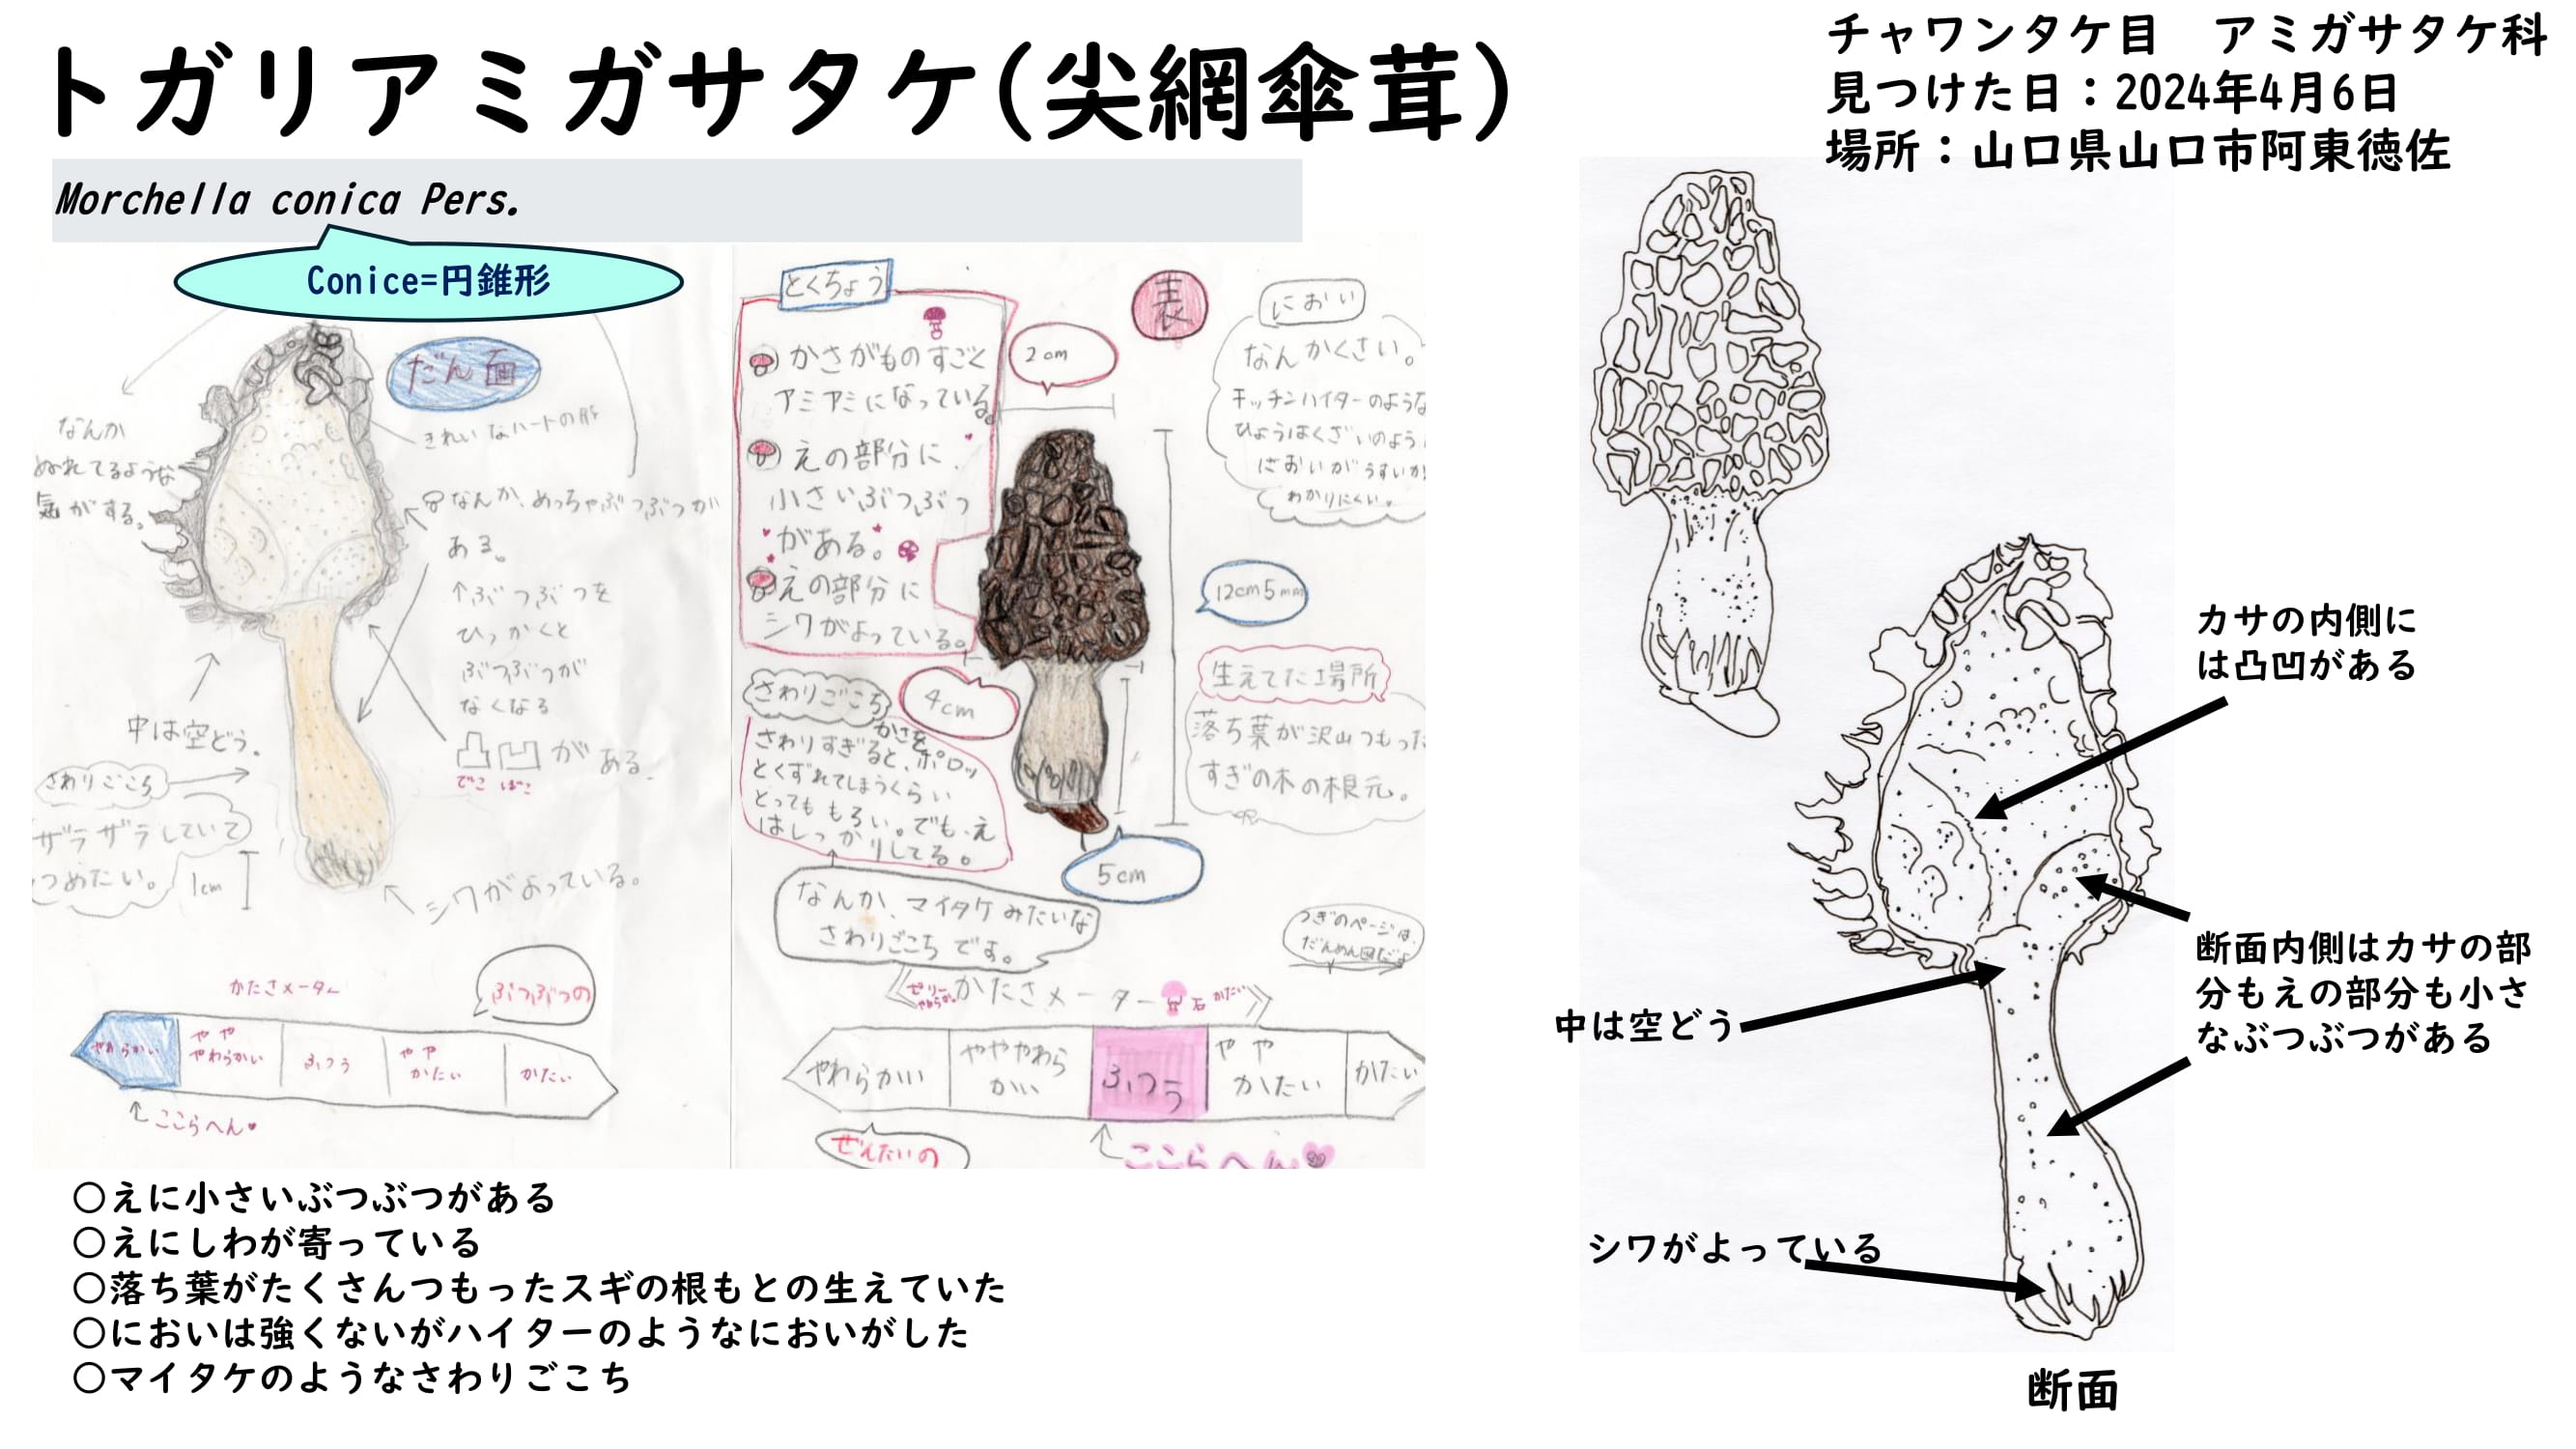 トガリアミガサタケ(尖網傘茸)
チャワンタケ目　アミガサタケ科
見つけた日：2024年4月6日
場所：山口県山口市阿東徳佐
Morchella conica Pers.
Conice=円錐形
だん面
なんか
ぬれてるような
気がする。
きれいなハートの形
なんか、めっちゃぶつぶつが
ある。
↑ぶつぶつを
ひっかくと
ぶつぶつが
なくなる
凸凹がある。
でこ ぼこ
中は空どう。
さわりごこち
ザラザラしていて
つめたい。
1cm
シワがよっている。
かたさメーター
ぶつぶつの
やわらかい
やや
やわらかい
ふつう
やや
かたい
かたい
ここらへん
とくちょう
かさがものすごく
アミアミになっている。
えの部分に
小さいぶつぶつ
がある。
えの部分に
シワがよっている。
表
2cm
12cm5mm
4cm
5cm
におい
なんかくさい。
キッチンハイターのような
ひょうはくざいのよう
においがうすいか
わかりにくい。
生えてた場所
落ち葉が沢山つもった
すぎの木の根元。
さわりごこち
かさを
さわりすぎると、ポロッ
とくずれてしまうくらい
とってももろい。でも、え
はしっかりしてる。
なんか、マイタケみたいな
さわりごこちです。
つぎのページは、
だんめん図だよ
ゼリー
やわらか
かたさメーター
石
かたい
やわらかい
やややわら
かい
ふつう
やや
かたい
かたい
ぜんたいの
ここらへん
〇えに小さいぶつぶつがある
〇えにしわが寄っている
〇落ち葉がたくさんつもったスギの根もとの生えていた
〇においは強くないがハイターのようなにおいがした
〇マイタケのようなさわりごこち
カサの内側に
は凸凹がある
断面内側はカサの部
分もえの部分も小さ
なぶつぶつがある
中は空どう
シワがよっている
断面